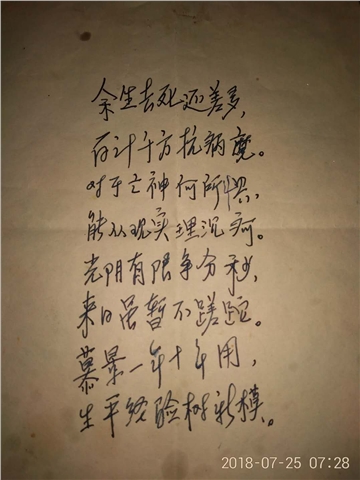 余生去死还差多,
百计千方抗病魔。
对于亡神何所惧,
能从现实理沉疴。
光阴有限争分秒,
来日虽暂不蹉跎。
暮景一年十年用,
生平经验树新模。
2018-07-25 07:28